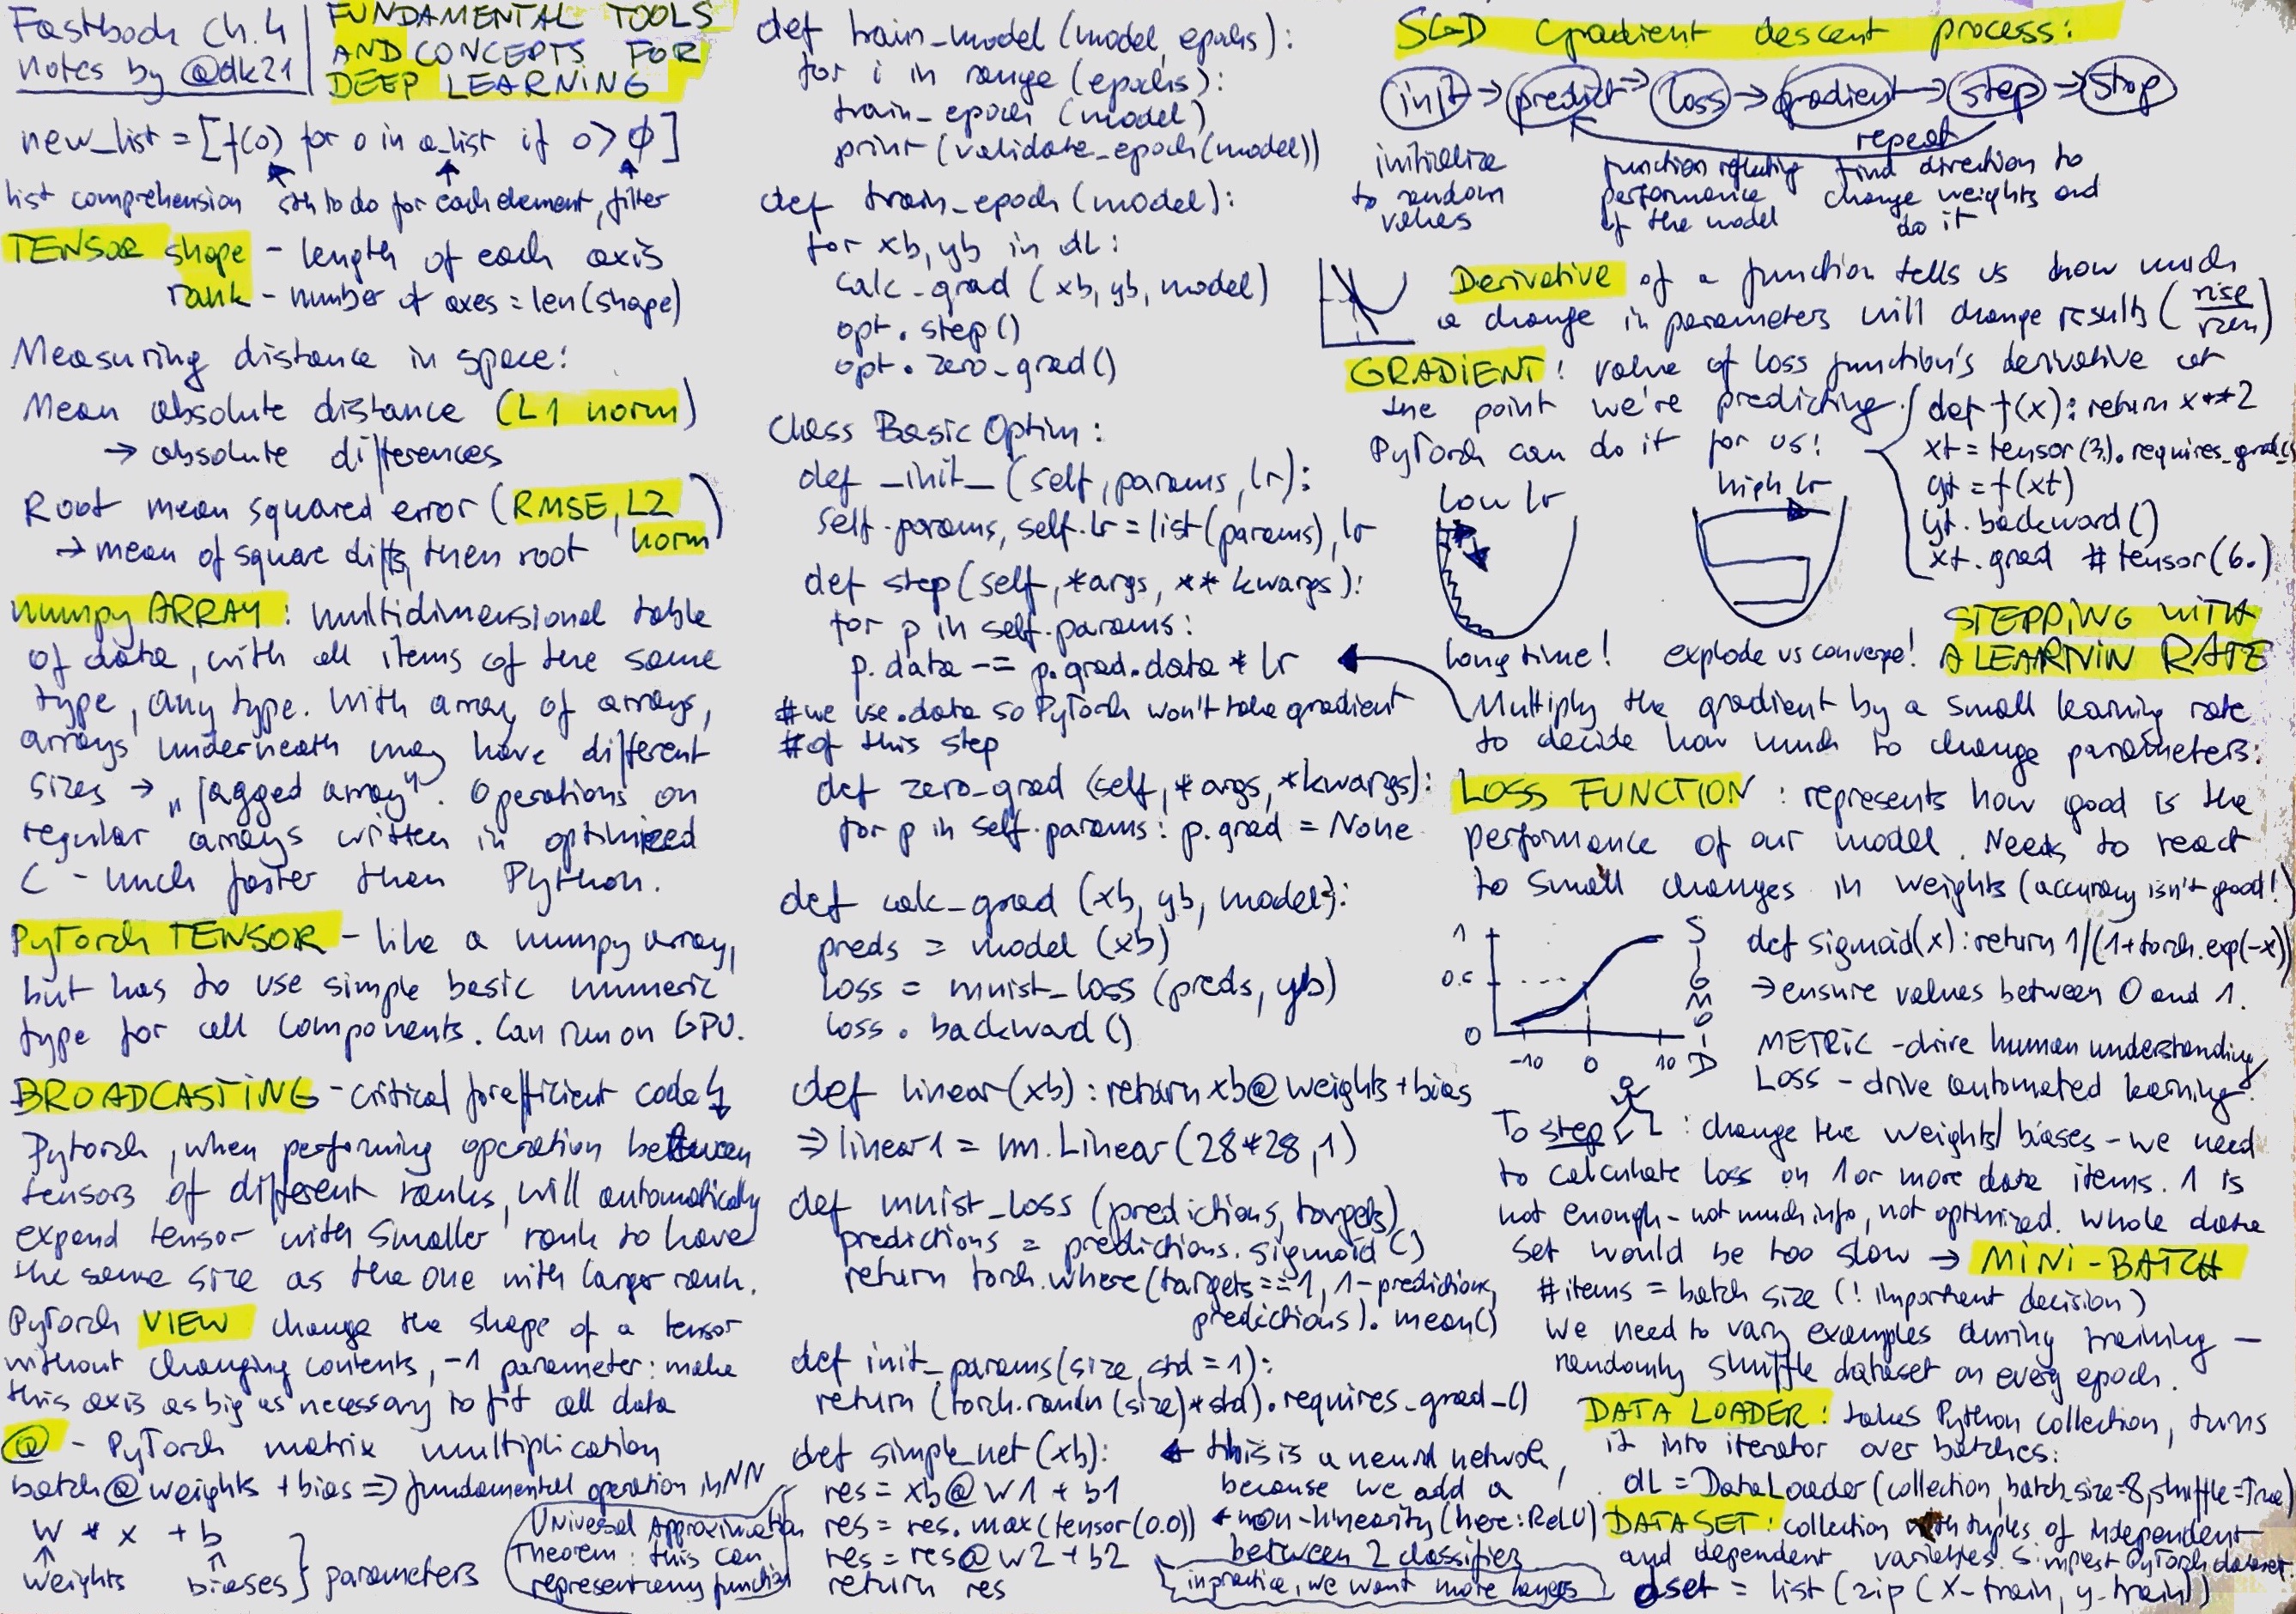 Fastbook Ch.4
notes by @dk21
FUNDAMENTAL TOOLS
AND CONCEPTS FOR
DEEP LEARNING
new_list = [f(o) for o in a_list if o > 0]
list comprehension sth to do for each element, filter
TENSOR shape - length of each axis
rank - number of axes = len(shape)
Measuring distance in space:
Mean absolute distance (L1 norm)
→ absolute differences
Root mean squared error (RMSE, L2
norm)
→ mean of square diffs, then root
numpy ARRAY: multidimensional table
of data, with all items of the same
type, any type. With array of arrays,
arrays underneath may have different
sizes → „jagged array". Operations on
regular arrays written in optimized
C - much faster than Python.
PyTorch TENSOR - like a numpy array,
but has to use simple basic numeric
type for all components. Can run on GPU.
BROADCASTING - critical for efficient code
Pytorch, when performing operation between
tensors of different ranks, will automatically
expand tensor with smaller rank to have
the same size as the one with larger rank.
PyTorch VIEW change the shape of a tensor
without changing contents, -1 parameter: make
this axis as big as necessary to fit all data
@ - PyTorch matrix multiplication
batch@weights + bias => fundamental operation in NN
w * x + b
weights biases } parameters
Universal Approximation
Theorem: this can
represent any function
def train_model (model, epochs):
for i in range (epochs):
train_epoch (model)
print (validate_epoch(model))
def train_epoch (model):
for xb, yb in dl:
calc_grad (xb, yb, model)
opt.step()
opt.zero_grad()
class Basic Optim:
def _init_ (self, params, lr):
self.params, self.lr = list(params), lr
def step (self, *args, ** kwargs):
for p in self.params:
p.data -= p.grad.data * lr
# we use .data so PyTorch won't take gradient
# of this step
def zero_grad (self, *args, *kwargs):
for p in self.params: p.grad = None
def calc_grad (xb, yb, model):
preds = model (xb)
loss = mnist_loss (preds, yb)
loss.backward()
def linear(xb): return xb@weights + bias
⇒ linear1 = nn.Linear(28*28, 1)
def mnist_loss (predictions, targets)
predictions = predictions.sigmoid()
return torch.where(targets==1, 1-predictions,
predictions).mean()
def init_params(size, std = 1):
return (torch.randn(size)*std).requires_grad_()
def simple_net (xb): ← this is a neural network,
res = xb@w1 + b1 because we add a
res = res.max(tensor(0.0)) ← non-linearity (here: ReLU)
res = res@w2 + b2 between 2 classifier
return res
in practice, we want more layers
SGD Gradient descent process:
init → predict → loss → gradient → step → stop
repeat
initialize
to random
values
function reflecting
performance
of the model
find direction to
change weights and
do it
Derivative of a function tells us how much
a change in parameters will change results (rise
run)
GRADIENT: value of loss function's derivative at
the point we're predicting.
PyTorch can do it for us!
def f(x): return x**2
xt = tensor(3.).requires_grad_()
yt = f(xt)
yt.backward()
xt.grad # tensor(6.)
low lr
high lr
long time! explode vs converge!
STEPPING WITH
A LEARNIN RATE
Multiply the gradient by a small learning rate
to decide how much to change parameters:
LOSS FUNCTION: represents how good is the
performance of our model. Needs to react
to small changes in weights (accuracy isn't good!
1
0.5
0
-10 0 10
SIGMOID
def sigmoid(x): return 1/(1+torch.exp(-x))
→ ensure values between 0 and 1.
METRIC - drive human understanding
LOSS - drive automated learning.
To step: change the weights/biases - we need
to calculate loss on 1 or more data items. 1 is
not enough - not much info, not optimized. Whole data
set would be too slow → MINI-BATCH
# items = batch size (! important decision)
We need to vary examples during training -
randomly shuffle dataset on every epoch.
DATA LOADER: takes Python collection, turns
it into iterator over batches:
dl = DataLoader(collection, batch_size=8, shuffle=True)
DATASET: collection with tuples of independent
and dependent variables. Simplest PyTorch dataset:
dset = list (zip (x_train, y_train))